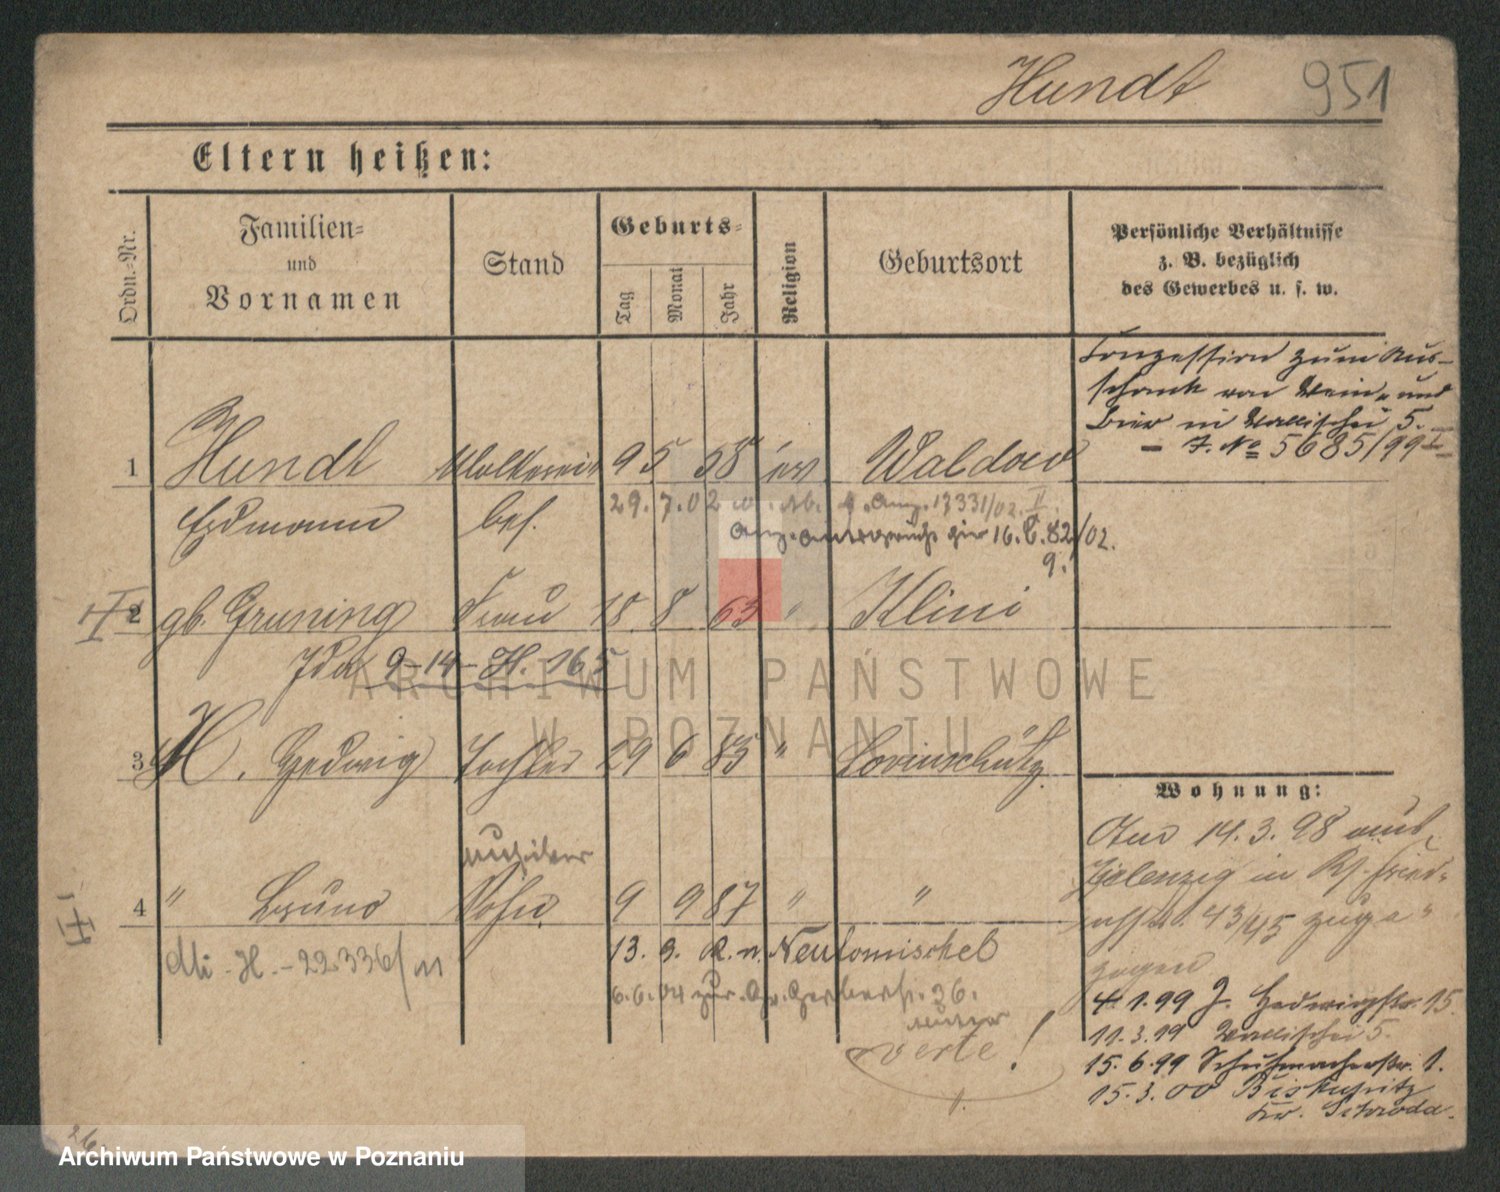 Hundt 951
Eltern heißen:
Ordn.-Nr.
Familien-
und
Vornamen
Stand
Geburts-
Tag
Monat
Jahr
Religion
Geburtsort
Persönliche Verhältnisse
z. B. bezüglich
des Gewerbes u. s. w.
Conzession zum Aus-
schank von Wein- und
Bier in Wallischei 5.
– J. No 5685/99 I
1 Hundt Molkerei 9 5 58 ev Waldow
Erdmann bes. 29. 7. 02
17331/02. II.
16. 82/02.
9.
2 gb. Gruning Frau 18 8 63 " Klini
Ida 9-14-H. 165
3 H. Hedwig Tochter 29 6 85 "
4 " Bruno Sohn 9 9 87 " "
Mi. H. - 22336/11
13. 9. R. n. Neutomischel
6.6.04 zur. Gr. Gerberstr. 36.
verte!
Wohnung:
Am 14.3.98 aus
Zielenzig in
43/45 zuge"
zogen
4.1.99 J. Hedwigstr. 15
11.3.99 Wallischei 5.
15.6.99 Schuhmacherstr. 1.
15.3.00 Biskupitz
Kr. Schroda.
26
ARCHIWUM PAŃSTWOWE
W POZNANIU
Archiwum Państwowe w Poznaniu